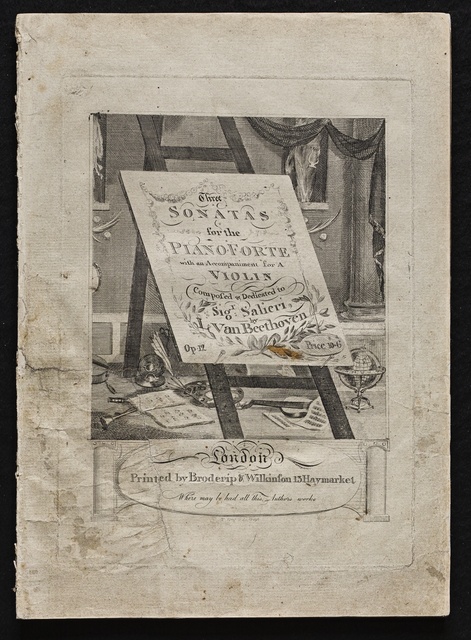 Three
SONATAS
for the
PIANO-FORTE
with an Accompaniment for A
VIOLIN
Composed & Dedicated to
Sigr. Salieri,
by
L. Van Beethoven
Op. 12. Price 10-6
London
Printed by Broderip & Wilkinson 13 Haymarket
Where may be had all this Authors works